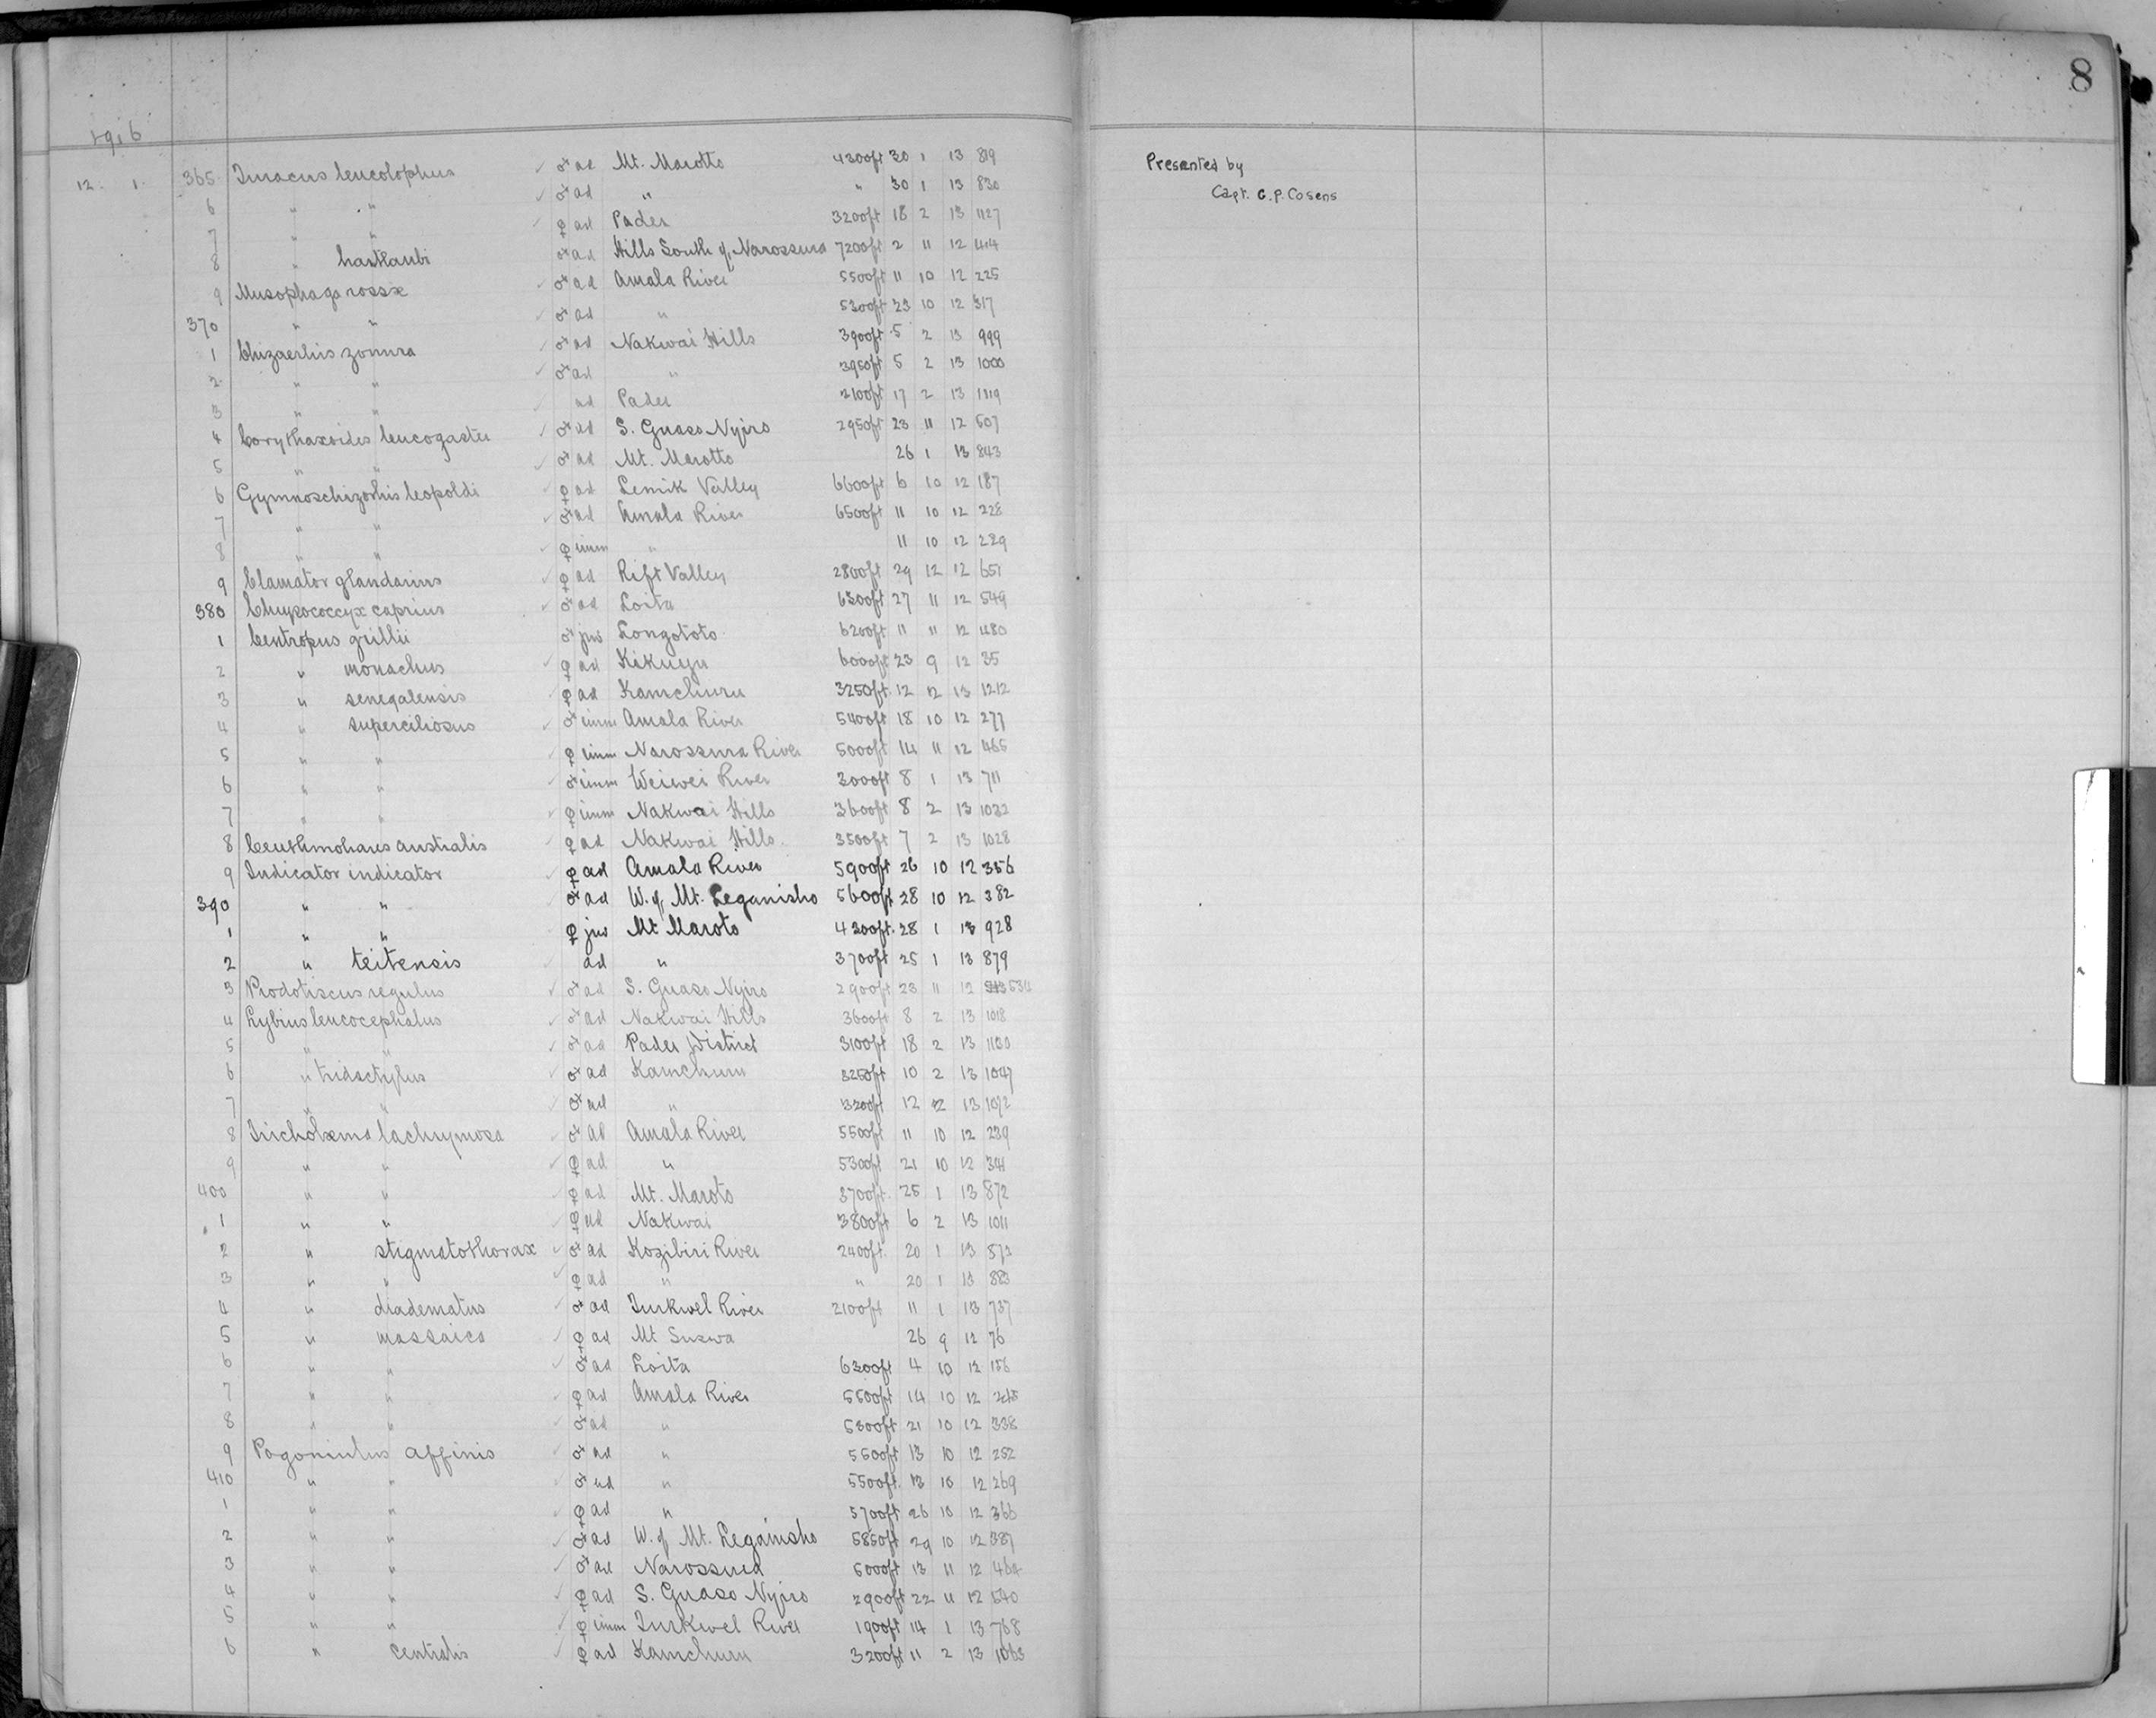 8
1916
12. 1. 365. Turacus leucolophus ✓ ♂ ad Mt. Marotto 4300ft 30 1 13 819
Presented by
6 " " ✓ ♂ ad " " 30 1 13 830
Capt. G.P. Cosens
7 " " ✓ ♀ ad Pader 3200ft 18 2 13 1127
8 " hartlaubi ♂ ad Hills South of Narossura 7200ft 2 11 12 414
9 Musophaga rossæ ✓ ♂ ad Amala River 5500ft 11 10 12 225
370 " " ✓ ♂ ad " 5300ft 23 10 12 317
1 Chizaerhis zonura ✓ ♂ ad Nakwai Hills 3900ft 5 2 13 999
2 " " ✓ ♂ ad " 3950ft 5 2 13 1000
3 " " ✓ ad Pader 2100ft 17 2 13 1119
4 Corythaxoides leucogaster ✓ ♂ ad S. Guaso Nyiro 2950ft 23 11 12 507
5 " " ✓ ♂ ad Mt. Marotto 26 1 13 843
6 Gymnoschizorhis leopoldi ✓ ♀ ad Lemik Valley 6600ft 6 10 12 187
7 " " ✓ ♂ ad Amala River 6500ft 11 10 12 228
8 " " ✓ ♀ imm " 11 10 12 229
9 Clamator glandarius ✓ ♀ ad Rift Valley 2800ft 29 12 12 651
380 Chrysococcyx caprius ✓ ♂ ad Loita 6300ft 27 11 12 549
1 Centropus grillii ♂ juv Longototo 6200ft 11 11 12 480
2 " monachus ✓ ♀ ad Kikuyu 6000ft 23 9 12 35
3 " senegalensis ✓ ♀ ad Kamchuru 3250ft. 12 12 13 1212
4 " superciliosus ✓ ♂ imm Amala River 5400ft 18 10 12 277
5 " " ✓ ♀ imm Narossura River 5000ft 14 11 12 465
6 " " ✓ ♂ imm Weiwei River 3000ft 8 1 13 711
7 " " ✓ ♀ imm Nakwai Hills 3600ft 8 2 13 1032
8 Ceuthmochares australis ✓ ♀ ad Nakwai Hills. 3500ft 7 2 13 1028
9 Indicator indicator ✓ ♀ ad Amala River 5900ft 26 10 12 356
390 " " ✓ ♂ ad W. of Mt. Leganisho 5600ft 28 10 12 382
1 " " ♀ juv Mt Maroto 4200ft. 28 1 13 928
2 " teitensis ad " 3700ft 25 1 13 879
3 Prodotiscus regulus ✓ ♂ ad S. Guaso Nyiro 2900ft 23 11 12 534
4 Lybius leucocephalus ✓ ♂ ad Nakwai Hills 3600ft 8 2 13 1018
5 " " ✓ ♂ ad Pader District 3100ft 18 2 13 1130
6 " tridactylus ✓ ♂ ad Kamchuru 3250ft 10 2 13 1047
7 " " ✓ ♂ ad " 3200ft 12 2 13 1072
8 Tricholæma lachrymosa ✓ ♂ ad Amala River 5500ft 11 10 12 239
9 " " ✓ ♀ ad " 5300ft 21 10 12 341
400 " " ✓ ♀ ad Mt. Maroto 3700ft. 25 1 13 872
1 " " ✓ ♀ ad Nakwai 3800ft 6 2 13 1011
2 " stigmatothorax ✓ ♂ ad Kozibiri River 2400ft. 20 1 13 872
3 " " ✓ ♀ ad " " 20 1 13 883
4 " diadematus ✓ ♂ ad Turkwel River 2100ft 11 1 13 737
5 " massaica ✓ ♀ ad Mt Suswa 26 9 12 76
6 " " ✓ ♂ ad Loita 6300ft 4 10 12 156
7 " " ✓ ♀ ad Amala River 5500ft 14 10 12 245
8 " " ✓ ♂ ad " 5300ft 21 10 12 338
9 Pogoniulus affinis ✓ ♂ ad " 5500ft 13 10 12 252
410 " " ✓ ♂ ad " 5500ft. 13 10 12 269
1 " " ✓ ♀ ad " 5700ft 26 10 12 366
2 " " ✓ ♂ ad W. of Mt. Leganisho 5850ft 29 10 12 387
3 " " ✓ ♂ ad Narossura 5000ft 13 11 12 464
4 " " ✓ ♀ ad S. Guaso Nyiro 2900ft 22 11 12 540
5 " " ✓ ♀ imm Turkwel River 1900ft 14 1 13 768
6 " centralis ✓ ♀ ad Kamchuru 3200ft 11 2 13 1063